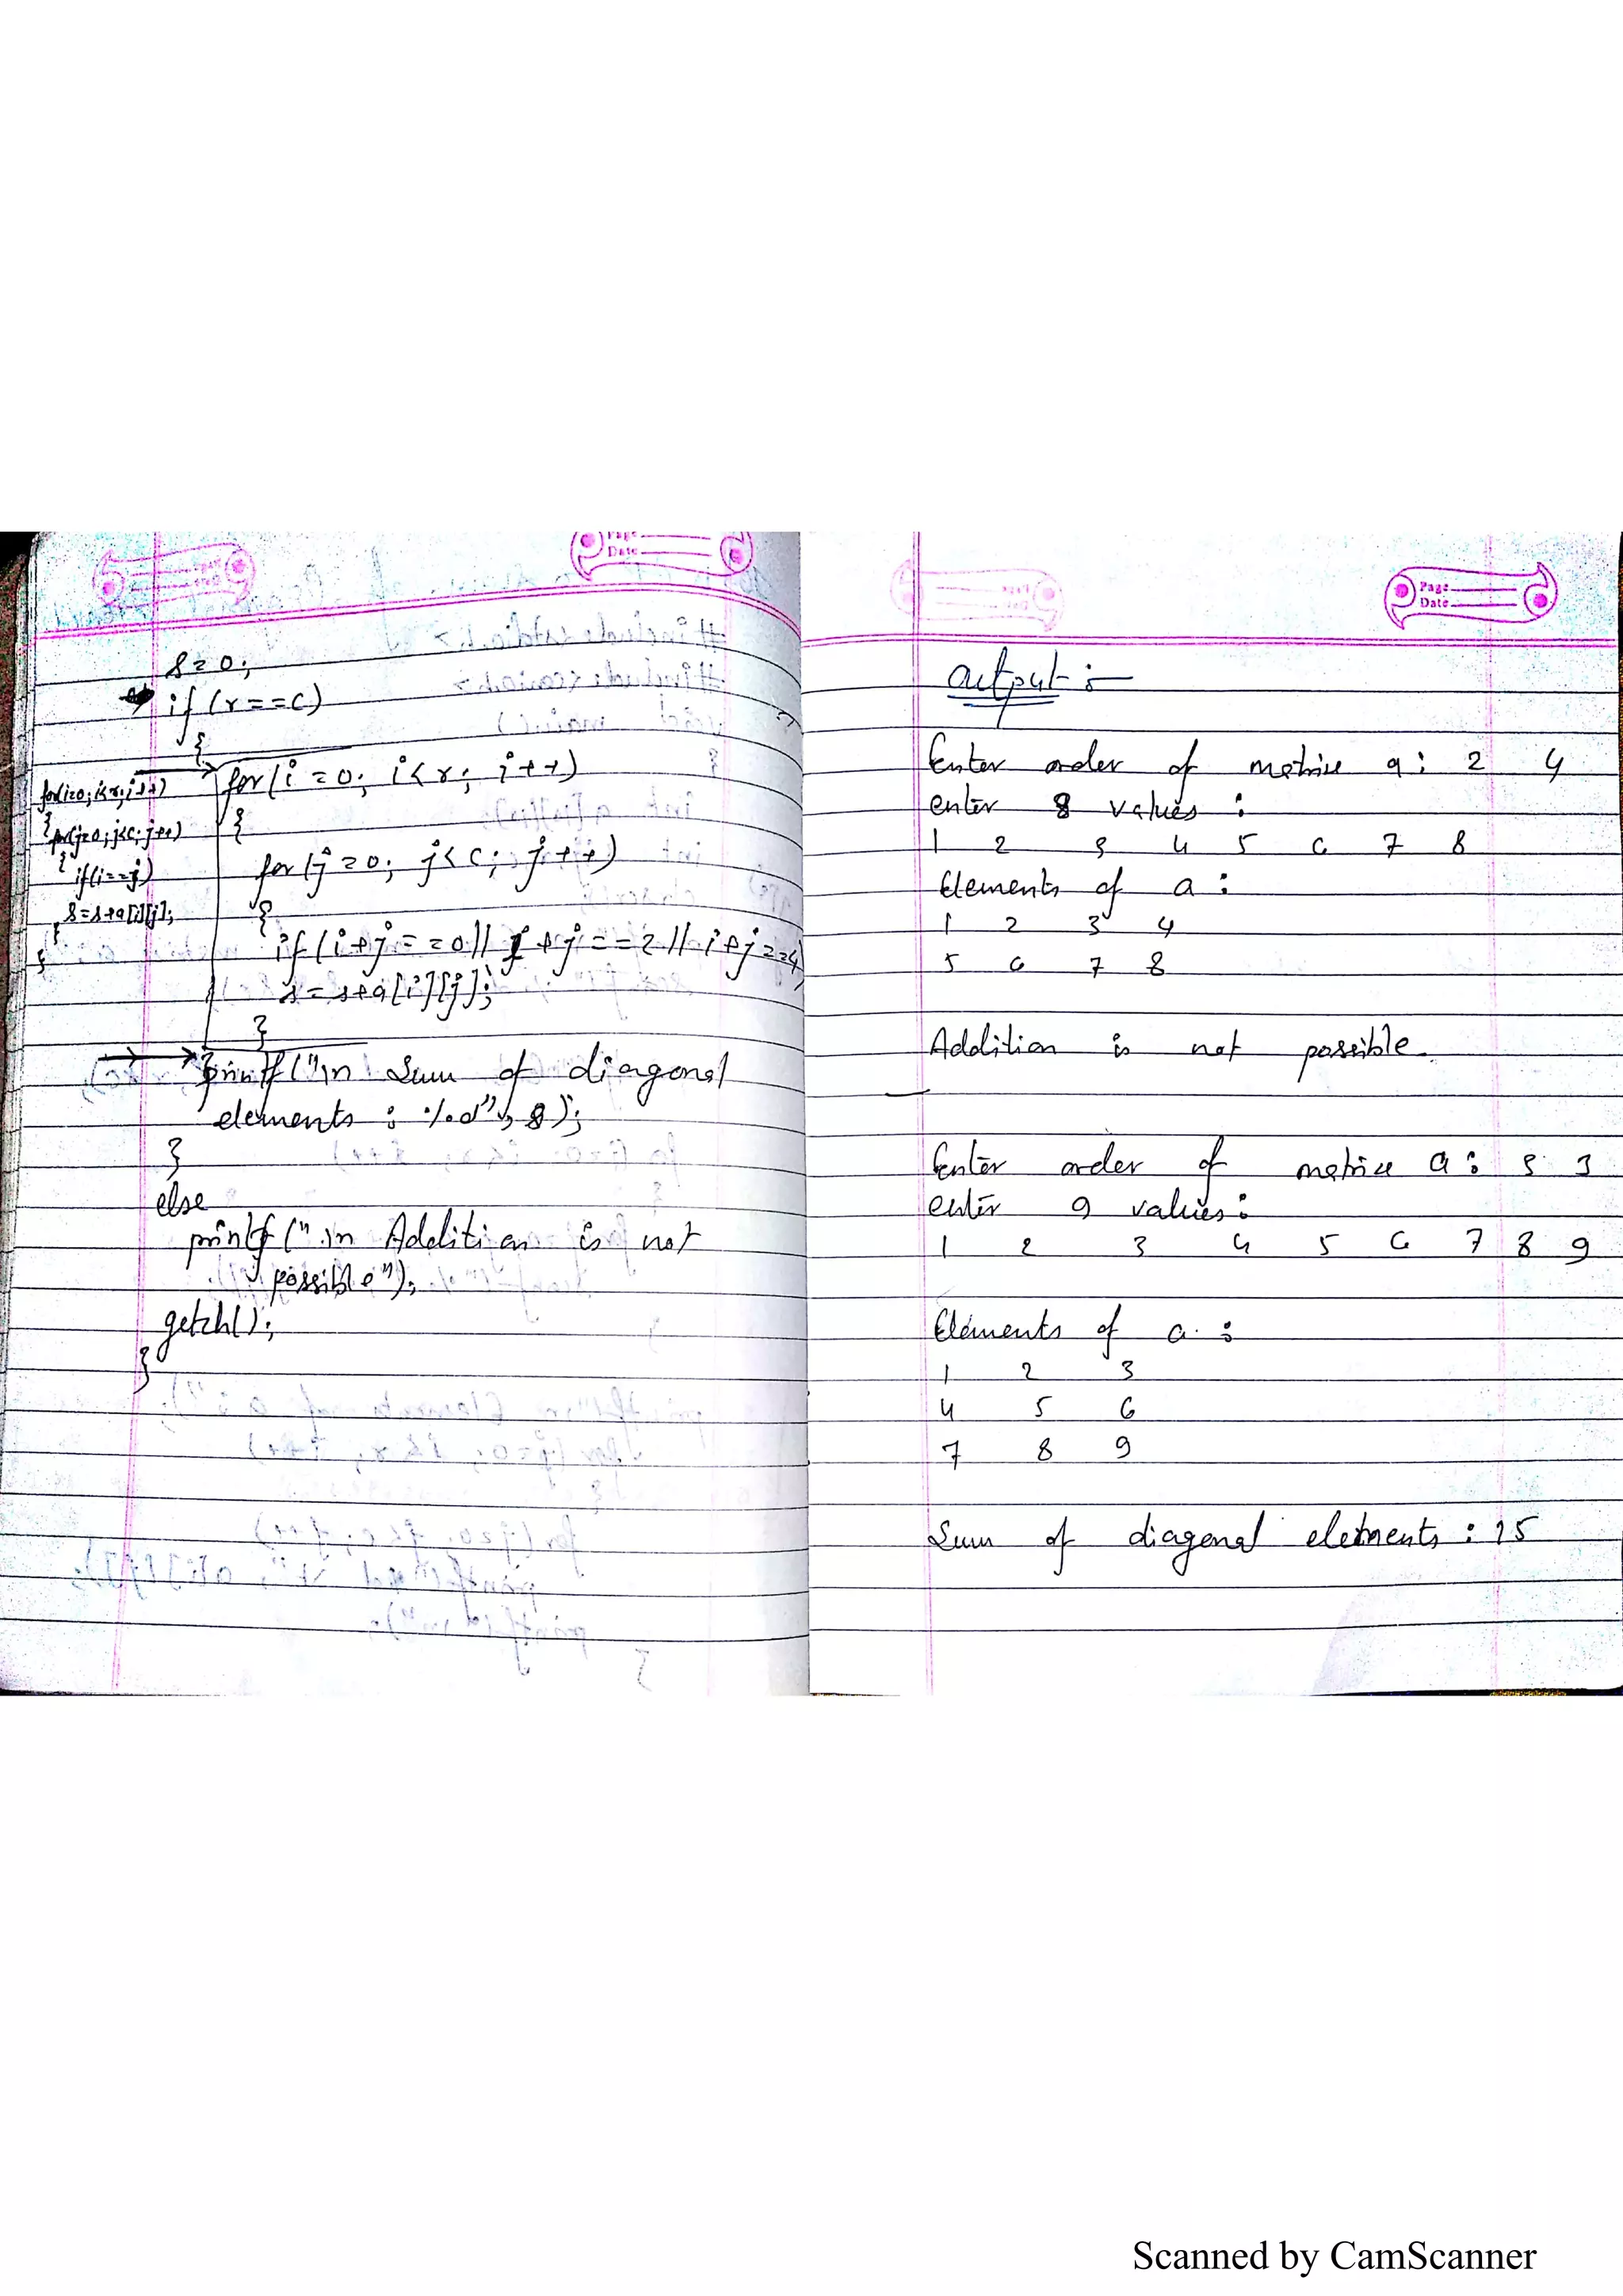 s=0;
if (r==c)
{
for(i=0; i<r; i++)
{
for(j=0; j<c; j++)
{
if(i==j)
s=s+a[i][j];
}
}
for(i=0; i<r; i++)
{
for(j=0; j<c; j++)
{
if(i+j==0|| i+j==2|| i+j==4)
s=s+a[i][j];
}
}
printf("\n Sum of diagonal
elements : %d", s);
}
else
printf("\n Addition is not
possible");
getch();
}
Page
Date
output :-
Enter order of matrix a: 2 4
enter 8 values :
1 2 3 4 5 6 7 8
Elements of a :
1 2 3 4
5 6 7 8
Addition is not possible.
Enter order of matrix a : 3 3
enter 9 values :
1 2 3 4 5 6 7 8 9
Elements of a :
1 2 3
4 5 6
7 8 9
Sum of diagonal elements : 25
Scanned by CamScanner